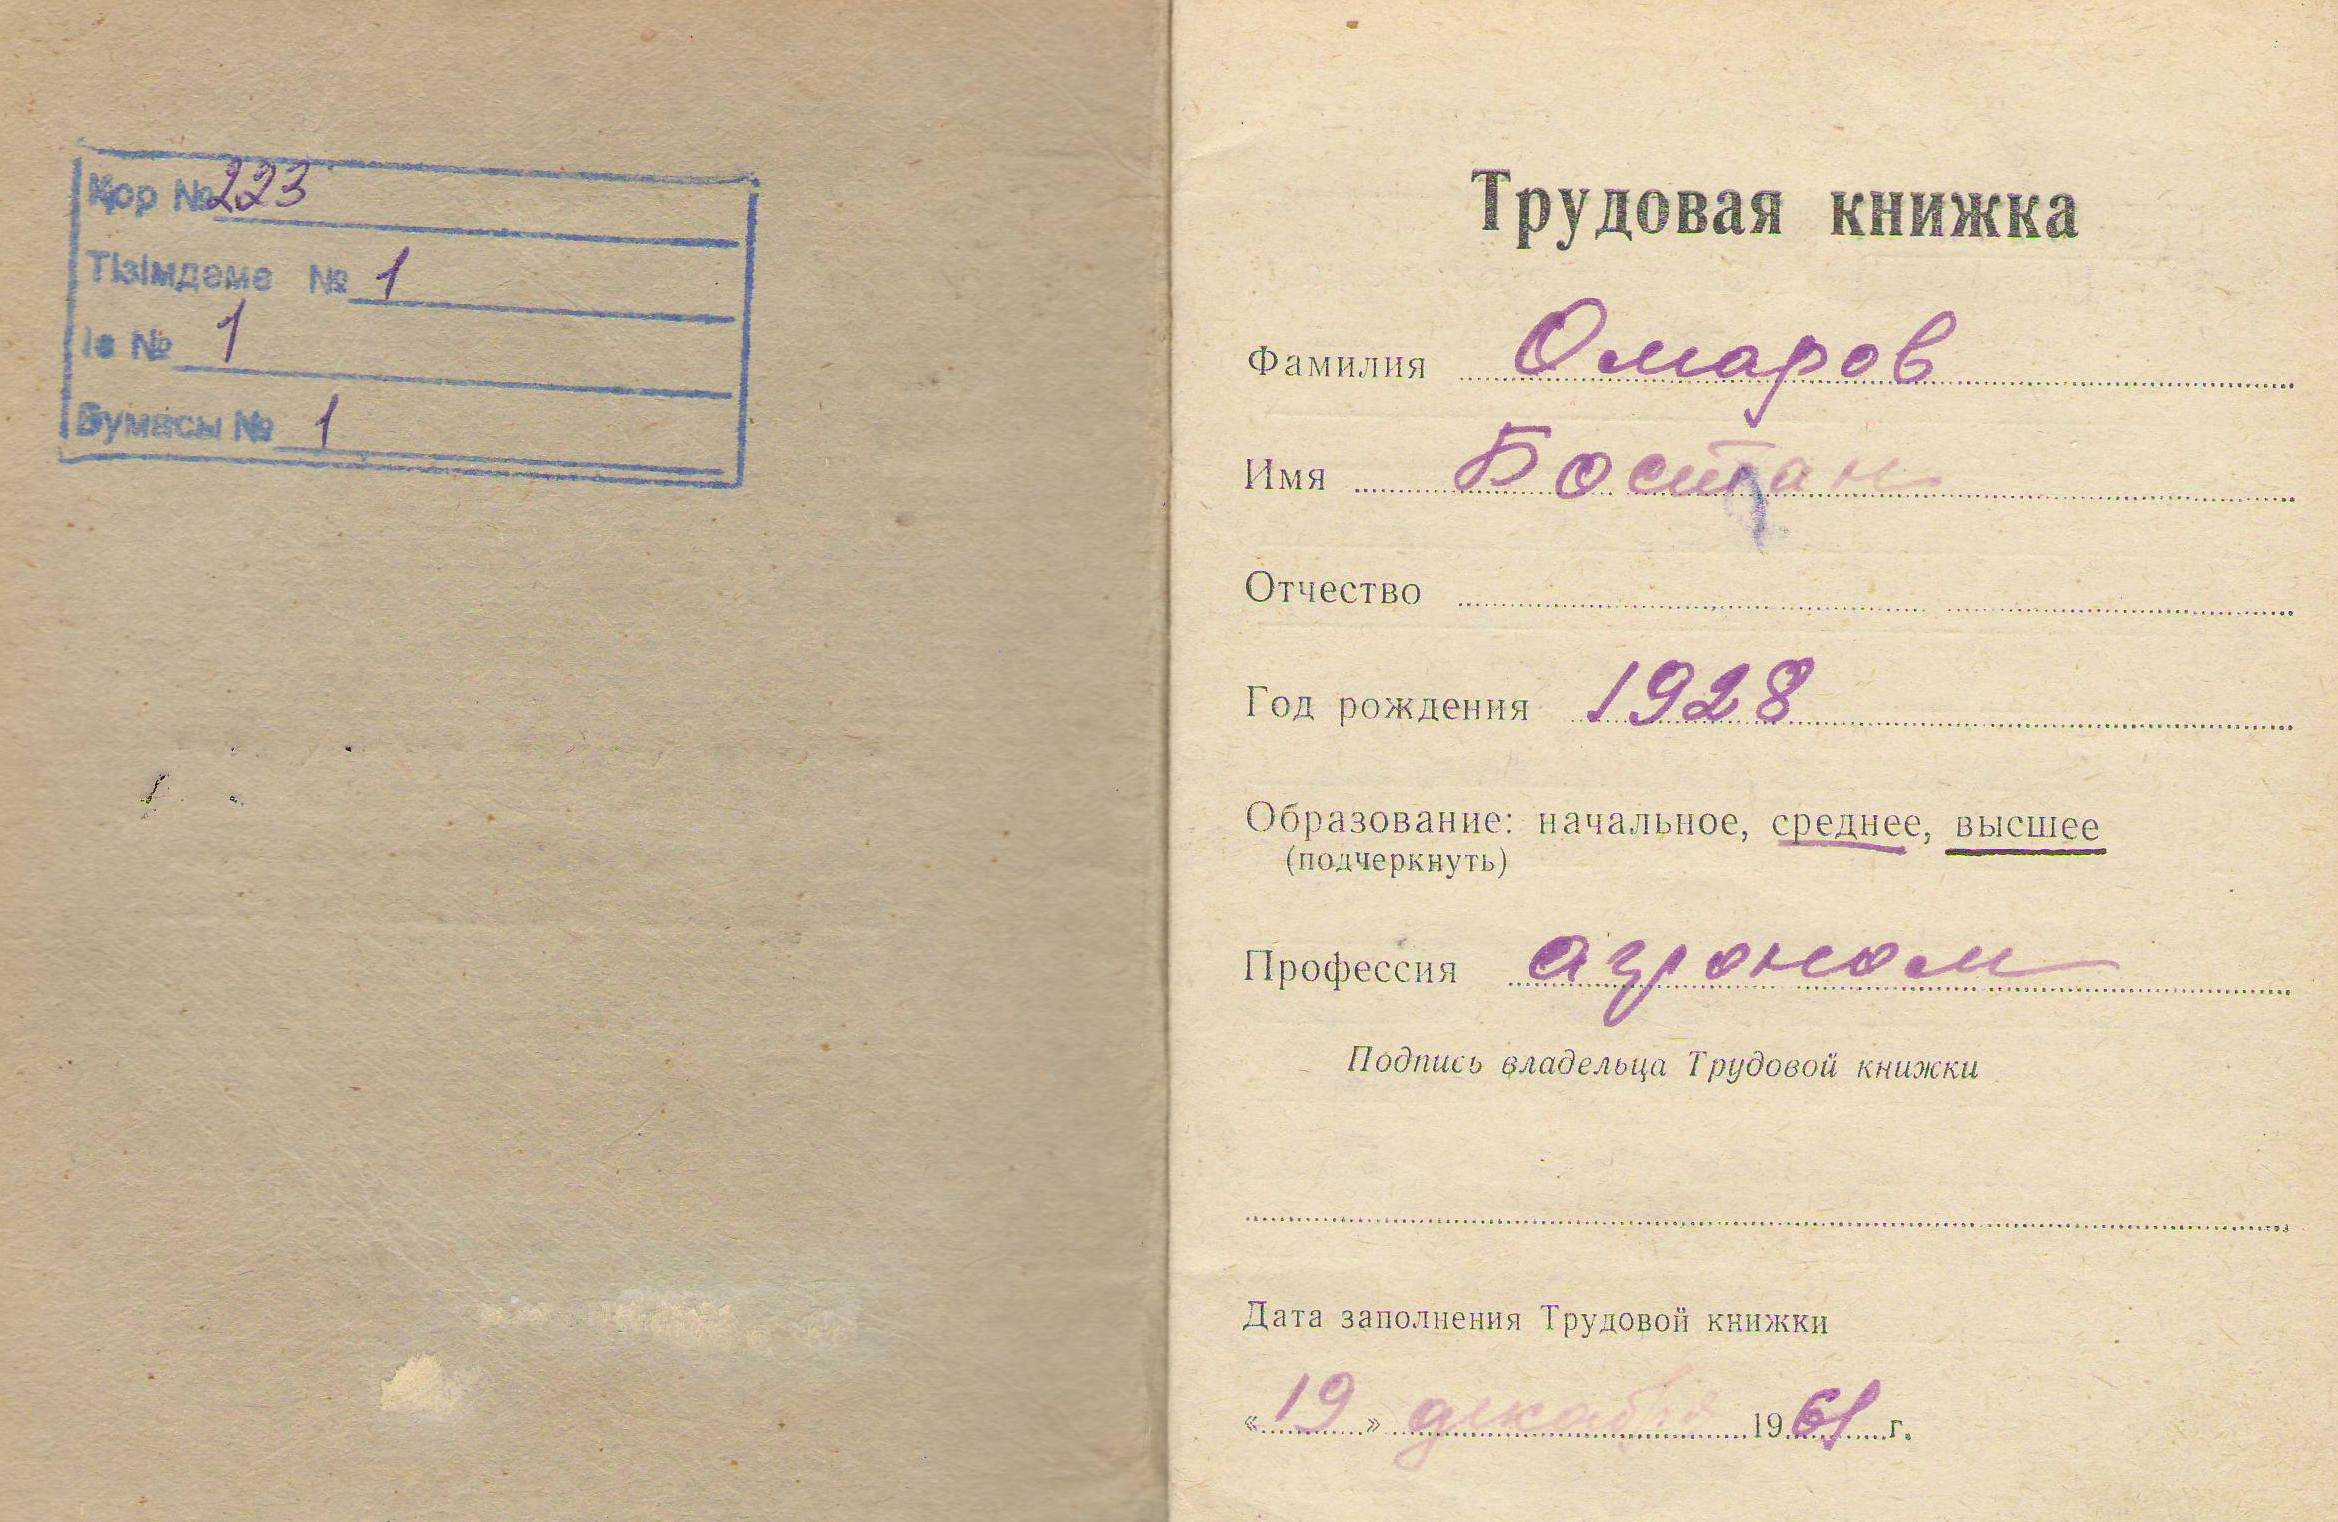 Қор № 223
Тізімдеме № 1
Іс № 1
Бумасы № 1
Трудовая книжка
Фамилия Омаров
Имя Бостан
Отчество
Год рождения 1928
Образование: начальное, среднее, высшее
(подчеркнуть)
Профессия агроном
Подпись владельца Трудовой книжки
Дата заполнения Трудовой книжки
«19» декабря 1961 г.